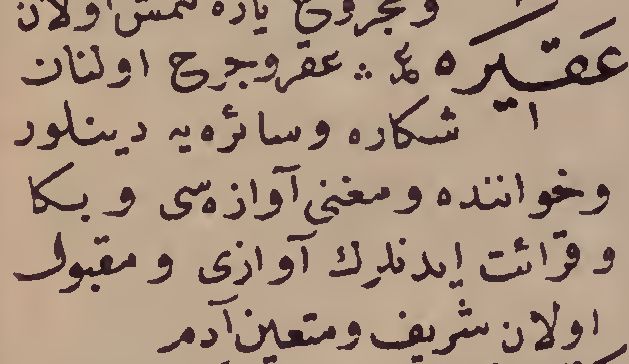 ومجروح یاره لنمش اولان
عقیره ع ∴ عقر وجرح اولنان
شکاره وسائره یه دینلور
وخواننده ومغنی آوازه سی و بکا
وقرائت ایدنلرك آوازی و مقبول
اولان شریف ومتعین آدم